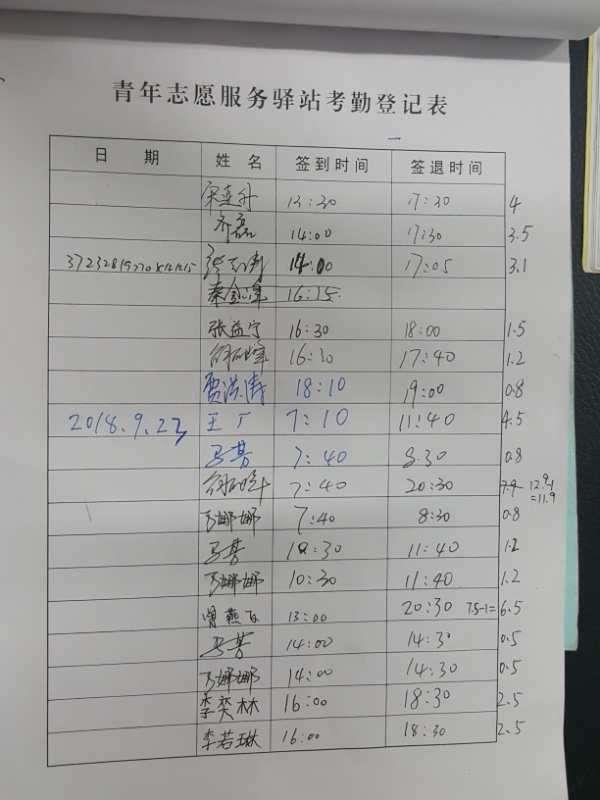 青年志愿服务驿站考勤登记表
日 期 姓 名 签到时间 签退时间
宋连升 13:30 17:30 4
齐磊 14:00 17:30 3.5
14:00 17:05 3.1
秦金泽 16:15
张益宁 16:30 18:00 1.5
16:30 17:40 1.2
贾洪涛 18:10 19:00 0.8
2018.9.23 王广 7:10 11:40 4.5
马菩 7:40 8:30 0.8
7:40 20:30 7.9 12.9-1
=11.9
马娜娜 7:40 8:30 0.8
马菩 10:30 11:40 1.2
马娜娜 10:30 11:40 1.2
曾燕飞 13:00 20:30 7.5-1= 6.5
马菩 14:00 14:30 0.5
马娜娜 14:00 14:30 0.5
李奕林 16:00 18:30 2.5
李若琳 16:00 18:30 2.5